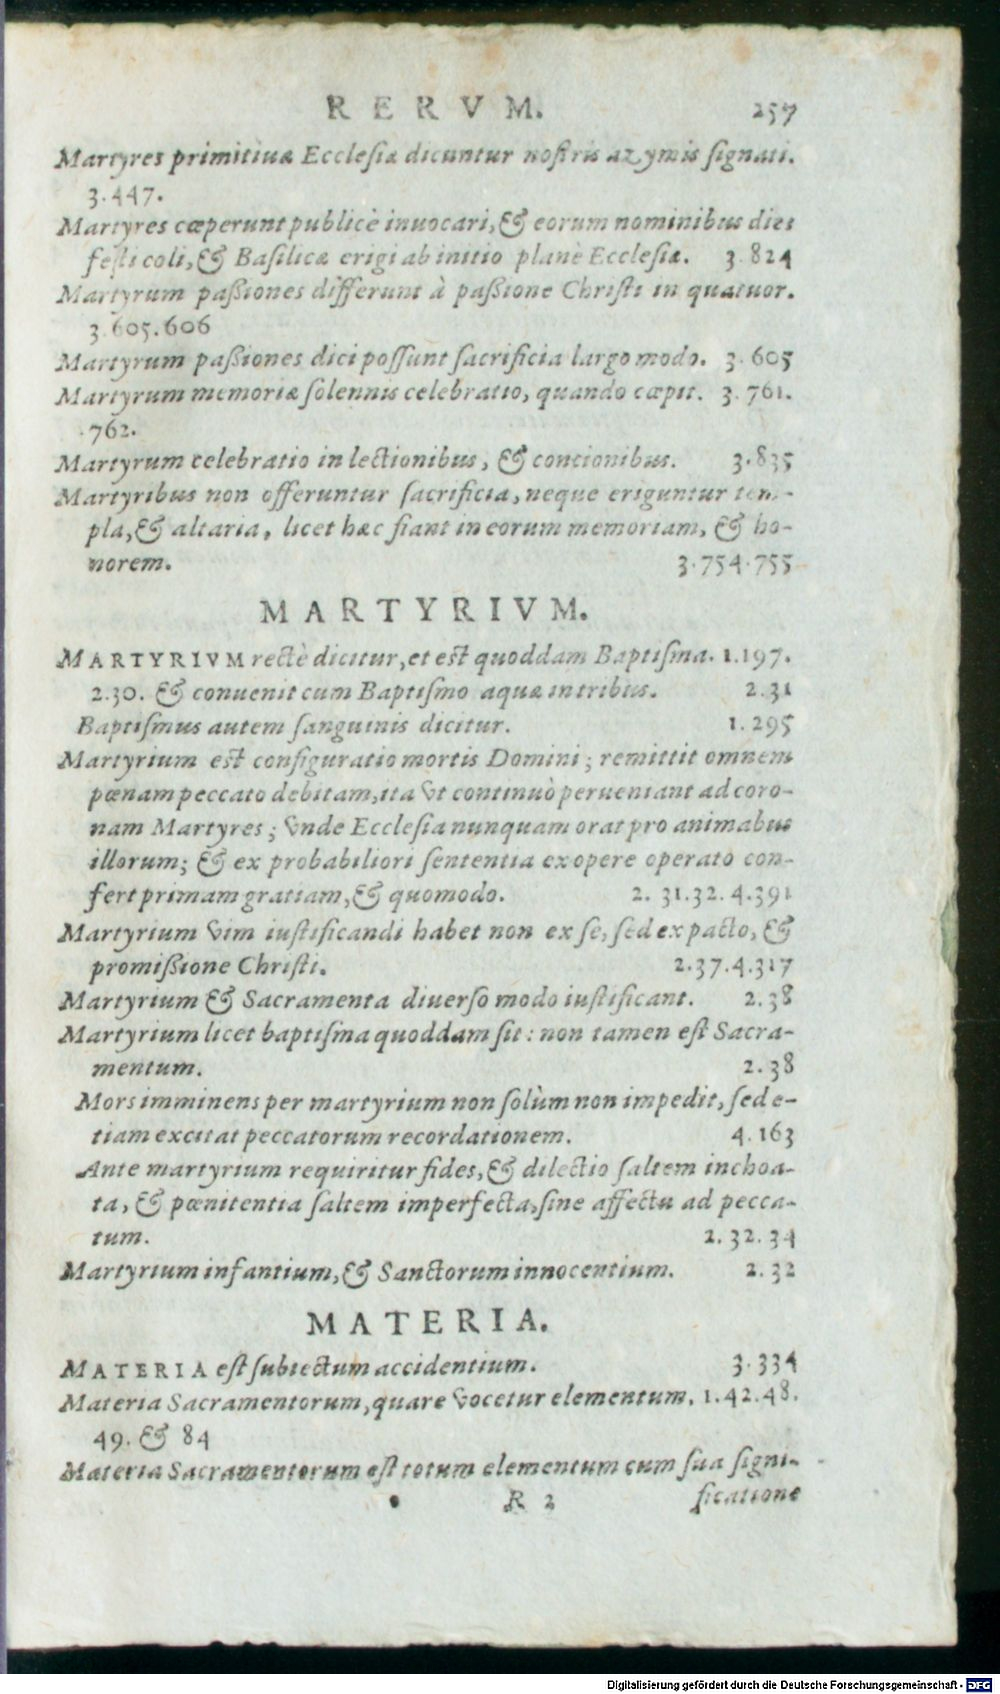 RERVM. 257
Martyres primitiuæ Ecclesiæ dicuntur nostris azymis signati.
3.447.
Martyres cœperunt publicè inuocari, & eorum nominibus dies
festi coli, & Basilicæ erigi ab initio planè Ecclesiæ. 3.824
Martyrum paßiones differunt à paßione Christi in quatuor.
3.605.606
Martyrum paßiones dici possunt sacrificia largo modo. 3.605
Martyrum memoriæ solennis celebratio, quando cœpit. 3.761.
762.
Martyrum celebratio in lectionibus, & concionibus. 3.835
Martyribus non offeruntur sacrificia, neque eriguntur tem-
pla, & altaria, licet hæc fiant in eorum memoriam, & ho-
norem. 3.754.755
MARTYRIVM.
MARTYRIVM rectè dicitur, et est quoddam Baptisma. 1.197.
2.30. & conuenit cum Baptismo aquæ in tribus. 2.31
Baptismus autem sanguinis dicitur. 1.295
Martyrium est configuratio mortis Domini; remittit omnem
pœnam peccato debitam, ita vt continuò perueniant ad coro-
nam Martyres; vnde Ecclesia nunquam orat pro animabus
illorum; & ex probabiliori sententia ex opere operato con-
fert primam gratiam, & quomodo. 2.31.32.4.391
Martyrium vim iustificandi habet non ex se, sed ex pacto, &
promißione Christi. 2.37.4.317
Martyrium & Sacramenta diuerso modo iustificant. 2.38
Martyrium licet baptisma quoddam sit: non tamen est Sacra-
mentum. 2.38
Mors imminens per martyrium non solùm non impedit, sed e-
tiam excitat peccatorum recordationem. 4.163
Ante martyrium requiritur fides, & dilectio saltem inchoa-
ta, & pœnitentia saltem imperfecta, sine affectu ad pecca-
tum. 2.32.34
Martyrium infantium, & Sanctorum innocentium. 2.32
MATERIA.
MATERIA est subiectum accidentium. 3.334
Materia Sacramentorum, quare vocetur elementum. 1.42.48.
49. & 84
Materia Sacramentorum est totum elementum cum sua signi-
R 2 ficatione
Digitalisierung gefördert durch die Deutsche Forschungsgemeinschaft - DFG